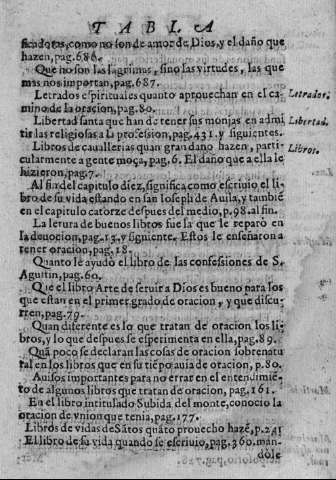 TABLA
ficadoras, como no son de amor de Dios, y el daño que
hazen, pag. 686.
Que no son las lagrimas, sino las virtudes, las que
mas nos importan, pag. 687.
Letrados espirituales quanto aprouechan en el ca-
mino de la oracion, pag. 80.
Letrados.
Libertad santa que han de tener sus monjas en admi
tir las religiosas a la profession, pag. 431. y siguientes.
Libertad.
Libros de cauallerias quan gran daño hazen, parti-
cularmente a gente moça, pag. 6. El daño que a ella le
hizieron, pag. 7.
Libros.
Al fin del capitulo diez, significa como escriuio el li-
bro de su vida estando en san Ioseph de Auila, y tambiẽ
en el capitulo catorze despues del medio, p. 98. al fin.
La letura de buenos libros fue la que le reparò en
la deuocion, pag. 13. y siguiente. Estos le enseñaron a
tener oracion, pag. 18.
Quanto le ayudò el libro de las confessiones de S.
Agustin, pag. 60.
Que el libro Arte de seruir a Dios es bueno para los
que estan en el primer grado de oracion, y que discu-
rren, pag. 79.
Quan diferente es lo que tratan de oracion los li-
bros, y lo que despues se esperimenta en ella, pag. 89.
Quã poco se declaran las cosas de oracion sobrenatu
ral en los libros que en su tiẽpo auia de oracion, p. 80.
Auisos importantes para no errar en el entendimiẽ-
to de algunos libros que tratan de oracion, pag. 161.
En el libro intitulado Subida del monte, conocio la
oracion de vnion que tenia, pag. 177.
Libros de vidas de Sãtos quãto prouecho hazẽ, p. 241
El libro de su vida quando se escriuio, pag. 360. man-
dole